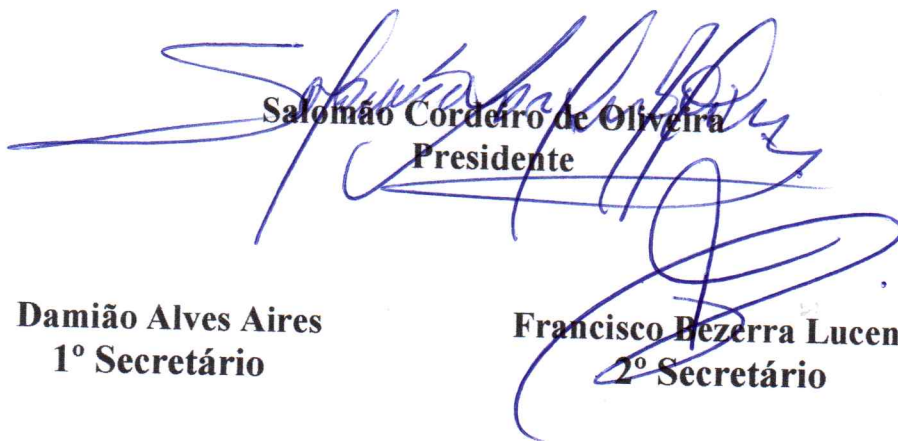 Salomão Cordeiro de Oliveira
Presidente
Damião Alves Aires
1º Secretário
Francisco Bezerra Lucen
2º Secretário